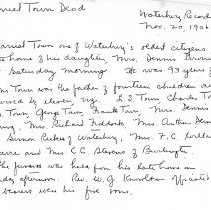 aniel Town Dead
Waterbury Record
Nov. 20, 1906
aniel Town one of Waterbury's oldest citizens
the home of his daughter, Mrs. Dennis
Saturday morning. He was 93 years
Town was the father of fourteen children
by eleven viz L.S. Town, Charles
Town, George Town, Mrs. Dennis
Mrs. Richard Mrs. Arthur
of Waterbury, Mrs. F.C.
and Mrs. C.C. Stevens of Burlington
funeral was held from his late home on
day afternoon. Rev. W. J. Knowlton officiated
bearers were his five sons.